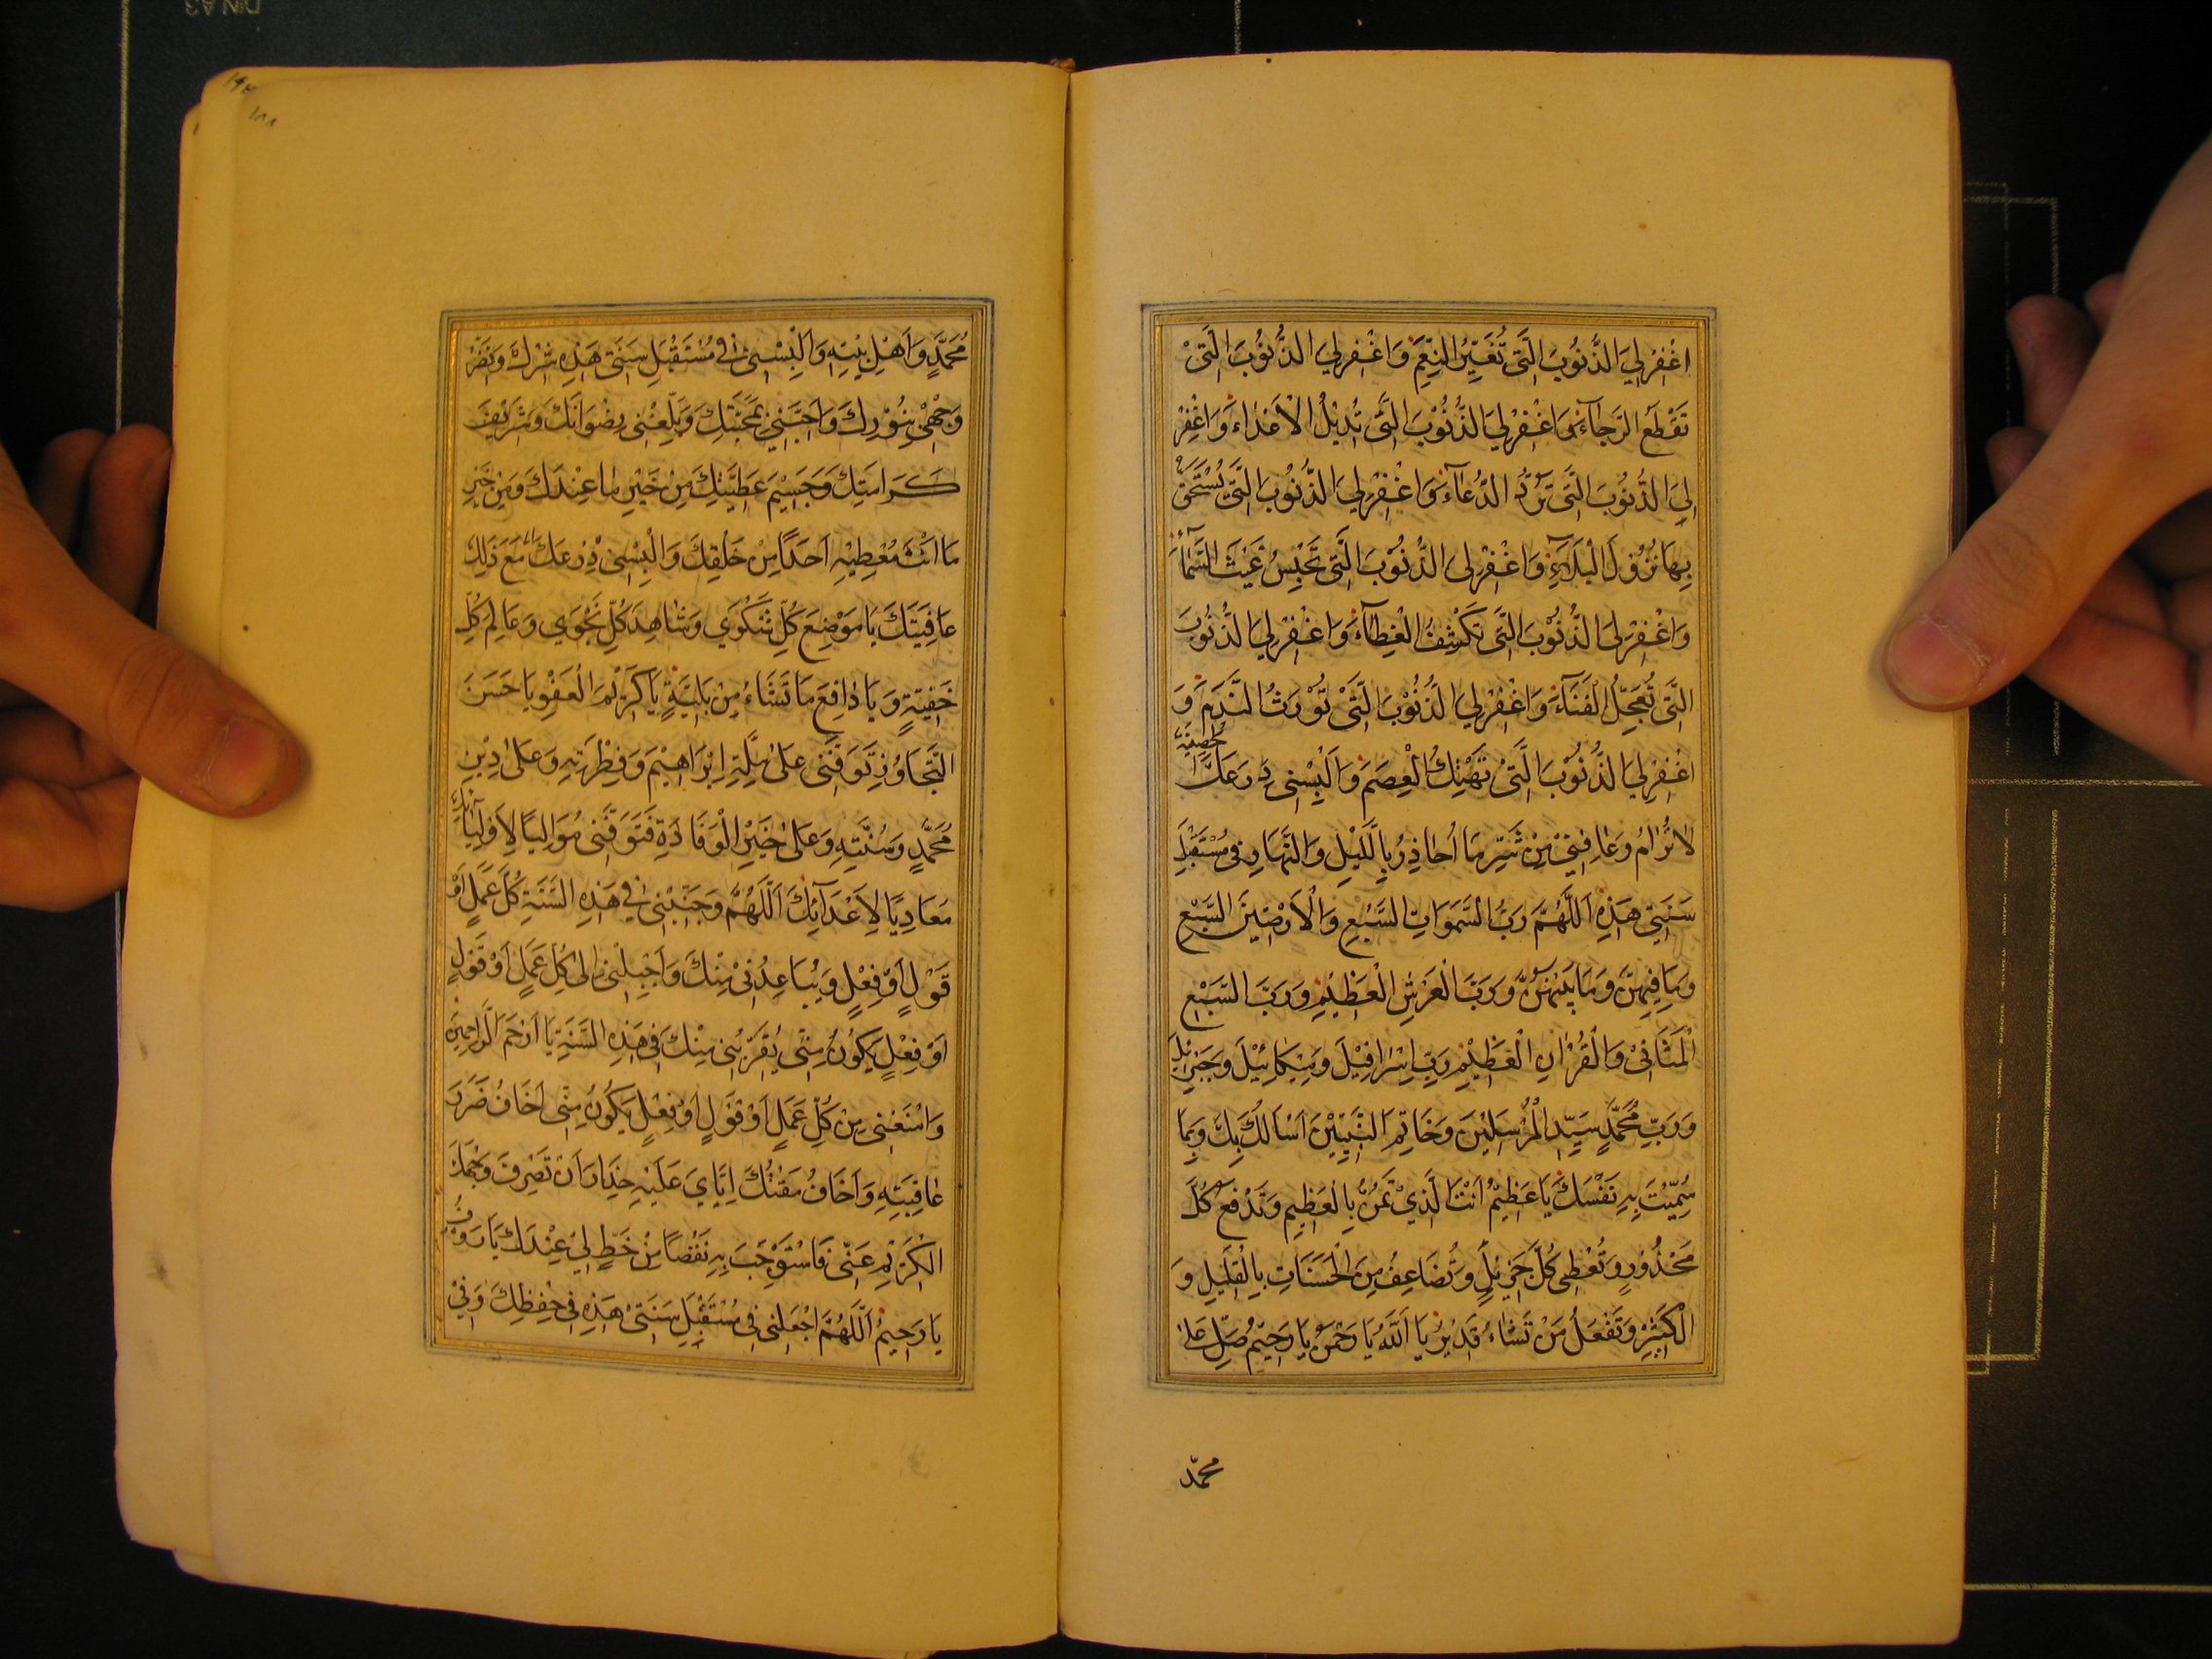 اغْفِرْ لِيَ الذُّنُوبَ الَّتِي تُغَيِّرُ النِّعَمَ وَاغْفِرْ لِيَ الذُّنُوبَ الَّتِيْ
تَقْطَعُ الرَّجَآءَ وَاغْفِرْ لِيَ الذُّنُوْبَ الَّتِي تُدِيْلُ الْاَعْدَاءَ وَاغْفِرْ
لِيَ الذُّنُوبَ الَّتِي تَرُدُّ الدُّعَآءَ وَاغْفِرْ لِيَ الذُّنُوبَ الَّتِي يُسْتَحَقُّ
بِهَا نُزُولَ الْبَلَآءِ وَاغْفِرْ لِى الذُّنُوْبَ الَّتِي تَحْبِسُ غَيْثَ السَّمَآءِ
وَاغْفِرْ لِىَ الذُّنُوْبَ الَّتِي تَكْشِفُ الْغِطَآءَ وَاغْفِرْ لِيَ الذُّنُوبَ
الَّتِي تُعَجِّلُ الْفَنَآءَ وَاغْفِرْ لِيَ الذُّنُوْبَ الَّتِيْ تُوْرِثُ النَّدَمَ وَ
اغْفِرْ لِيَ الذُّنُوْبَ الَّتِيْ تَهْتِكُ الْعِصَمَ وَاَلْبِسْنِى دِرْعَكَ الحَصِيْنَةَ
لاتُرَامُ وَعَافِنِيْ مِنْ شَرِّ مَا اُحَاذِرُ بِاللَّيْلِ وَالنَّهَارِ فِى مُسْتَقْبَلِ
سَنَتِيْ هَذِهِ اَللّٰهُمَّ رَبَّ السَّمَوَاتِ السَّبْعِ وَالْاَرَضِيْنَ السَّبْعِ
وَمَا فِيْهِنَّ وَمَا بَيْنَهُنَّ وَرَبَّ الْعَرْشِ الْعَظِيْمِ وَرَبَّ السَّبْعِ
الْمَثَانِيْ وَالْقُرْانِ الْعَظِيْمِ رَبِّ اِسْرَافِيْلَ وَمِيْكَائِيْلَ وَجَبْرَائِيْلَ
وَرَبِّ مُحَمَّدٍ سَيِّدِ الْمُرْسَلِيْنَ وَخَاتِمِ النَّبِيِّيْنَ اَسْأَلُكَ بِكَ وَبِمَا
سَمَّيْتَ بِهِ نَفْسَكَ يَا عَظِيْمُ اَنْتَ الَّذِيْ تَمُنُّ بِالْعَظِيْمِ وَتَدْفَعُ كُلَّ
مَحْذُوْرٍ وَتُعْطِى كُلَّ جَزِيْلٍ وَتُضَاعِفُ مِنَ الْحَسَنَاتِ بِالْقَلِيْلِ وَ
الْكَثِيْرِ وَتَفْعَلُ مَنْ تَشَاءُ قَدِيْرُ يَا اَللّٰهُ يَا رَحْمٰنُ يَا رَحِيْمُ صَلِّ عَلىٰ
محمّد
مُحَمَّدٍ وَاَهْلِ بَيْتِهِ وَاَلْبِسْنِىْ فِى مُسْتَقْبَلِ سَنَتِى هَذِهِ سِتْرَكَ وَنَضِّرْ
وَجْهِىْ بِنُوْرِكَ وَاَحِبَّنِيْ بِمَحَبَّتِكَ وَبَلِّغْنِى رِضْوَانَكَ وَشَرِيْفَ
كَرَامَتِكَ وَجَسِيْمَ عَطِيَّتِكَ مِنْ خَيْرِ مَا عِنْدَكَ وَمِنْ خَيْرِ
مَا اَنْتَ مُعْطِيْهِ اَحَدًا مِنْ خَلْقِكَ وَاَلْبِسْنِىْ دِرْعَكَ مَعَ ذَلِكَ
عَافِيَتَكَ يَا مَوْضِعَ كُلِّ شَكْوَى وَشَاهِدَ كُلِّ نَجْوَي وَعَالِمَ كُلِّ
خَفِيَّةٍ وَيَا دَافِعَ مَا تَشَاءُ مِنْ بَلِيَّةٍ يَا كَرِيْمَ الْعَفْوِ يَا حَسَنَ
التَّجَاوُزِ تَوَفَّنِى عَلىٰ مِلَّةِ اِبْرَاهِيْمَ وَفِطْرَتِهِ وَعَلىٰ دِيْنِ
مُحَمَّدٍ وَسُنَّتِهِ وَعَلىٰ خَيْرِ الْوَفَادَةِ فَتَوَفَّنِى مُوَالِيًا لِاَوْلِيَآئِكَ
مُعَادِيًا لِاَعْدَآئِكَ اَللّٰهُمَّ وَجَنِّبْنِى فِي هَذِهِ السَّنَةِ كُلَّ عَمَلٍ اَوْ
قَوْلٍ اَوْ فِعْلٍ وَيُبَاعِدُنِىْ مِنْكَ وَاجْلِبْنِى اِلىٰ كُلِّ عَمَلٍ اَوْ قَوْلٍ
اَوْ فِعْلٍ يَكُوْنُ مِنِّى يُقَرِّبُنِى مِنْكَ فِى هَذِهِ السَّنَةِ يَا اَرْحَمَ الرَّاحِمِيْنَ
وَامْنَعْنِى مِنْ كُلِّ عَمَلٍ اَوْ قَوْلٍ اَوْ فِعْلٍ يَكُوْنُ مِنِّى اَخَافُ ضَرَرَ
عَاقِبَتِهِ وَاَخَافُ مَقْتَكَ اِيَّايَ عَلَيْهِ حِذَارَ اَنْ تَصْرِفَ وَجْهَكَ
الْكَرِيْمَ عَنِّى فَاَسْتَوْجِبَ بِهِ نَقْصًا مِنْ حَظٍّ لِيْ عِنْدَكَ يَا رَؤُفُ
يَا رَحِيْمُ اَللّٰهُمَّ اجْعَلْنِى فِى مُسْتَقْبَلِ سَنَتِىْ هَذِهِ فِى حِفْظِكَ وَفِيْ